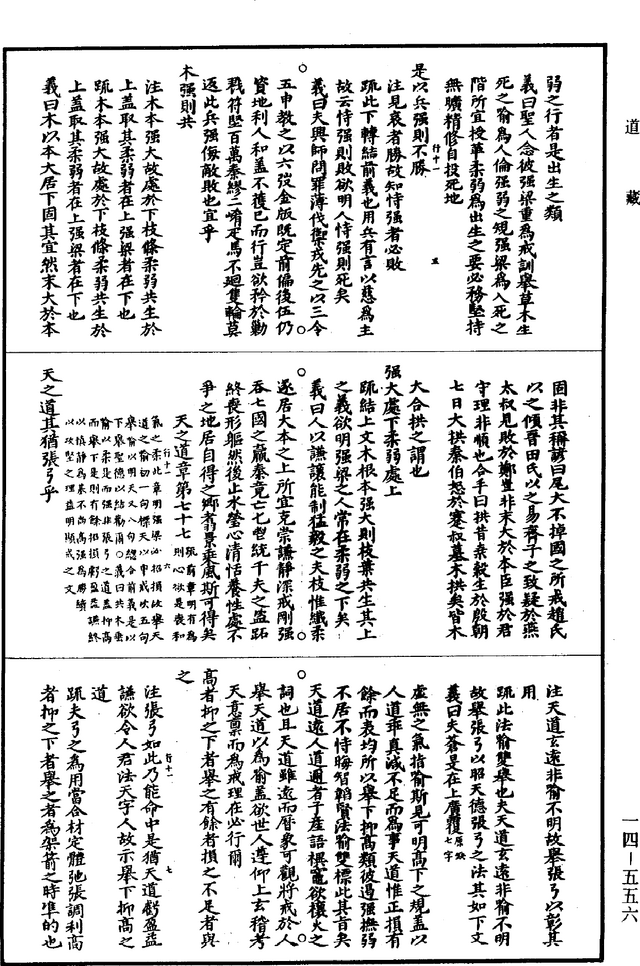 道藏
弱之行者是出生之類
義曰聖人念彼强梁重為戒訓舉草木生
死之喻為人倫强弱之規强梁為入死之
階所宜捨革柔弱為出生之要必務堅持
無曠精修自投死地
是以兵强則不勝
注見哀者勝故知恃强者必敗
疏此下轉結前義也用兵有言以慈為主
故云恃强則敗欲明人恃强則死矣
義曰夫興師問罪薄伐禦戎先之以三令
五申教之以六弢金版既定前偏後伍仍
資地利人和盖不獲已而行豈欲矜於勦
戮符堅百萬秦繆二崤疋馬不迴隻輪莫
返此兵强侮敵敗也宜乎
木强則共
注木本强大故處於下枝條柔弱共生於
上蓋取其柔弱者在上强梁者在下也
疏木本强大故處於下枝條柔弱共生於
上蓋取其柔弱者在上强梁者在下也
義曰木以本大居下固其宜然末大於本
固非其稱諺曰尾大不掉國之所戒趙氏
以之傾晉田氏以之易齊子之致疑於燕
太叔見敗於鄭豈非末大於本臣强於君
守理非順也合手曰拱昔桑穀生於殷朝
七日大拱秦伯怒於蹇叔墓木拱矣皆木
大合拱之謂也
强大處下柔弱處上
疏結上文木根本强大則枝葉共生其上
之義欲明强梁之人常在柔弱之下矣
義曰人以謙讓能制猛毅之夫枝惟纖柔
遂居大本之上所宜克崇謙靜深戒剛强
吞七國之嬴秦竟亡七世統千夫之盜跖
終喪形軀然後止水瑩心清恬養性處不
爭之地居自得之鄉翥景乘風斯可得矣
天之道章第七十七
天之道其猶張弓乎
注天道玄遠非喻不明故舉張弓以彰其
用
疏此法喻雙舉也夫天道玄遠非喻不明
故舉張弓以昭天德張弓之法其如下文
義曰夫蒼蒼是在上廣覆原缺七字
虛無之氣指喻斯見可明高下之規蓋以
人道乖真減不足而為事天道惟正損有
餘而表均所以舉下抑高類彼過强撫弱
不居不恃晦智韜賢法喻雙標此其旨矣
天道遠人道邇者子產語裨竈欲禳火之
詞也且天道雖遠而曆象可觀將戒於人
舉天道以為喻蓋欲世人遵仰上玄稽考
天意禀而為戒理在必行爾
高者抑之下者舉之有餘者損之不足者與
之
注張弓如此乃能命中是猶天道虧盈益
謙欲令人君法天字人故示舉下抑高之
道
疏夫弓之為用當合材定體弛張調利高
者抑之下者舉之者為架箭之時準的也
一四—五五六